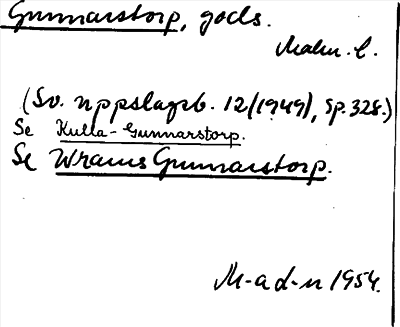 Gunnarstorp, gods.
Malm. l.
(Sv. uppslagsb. 12/(1949), sp. 328.)
Se Kulla-Gunnarstorp.
Se Wrams Gunnarstorp.
M-a d-n 1954.